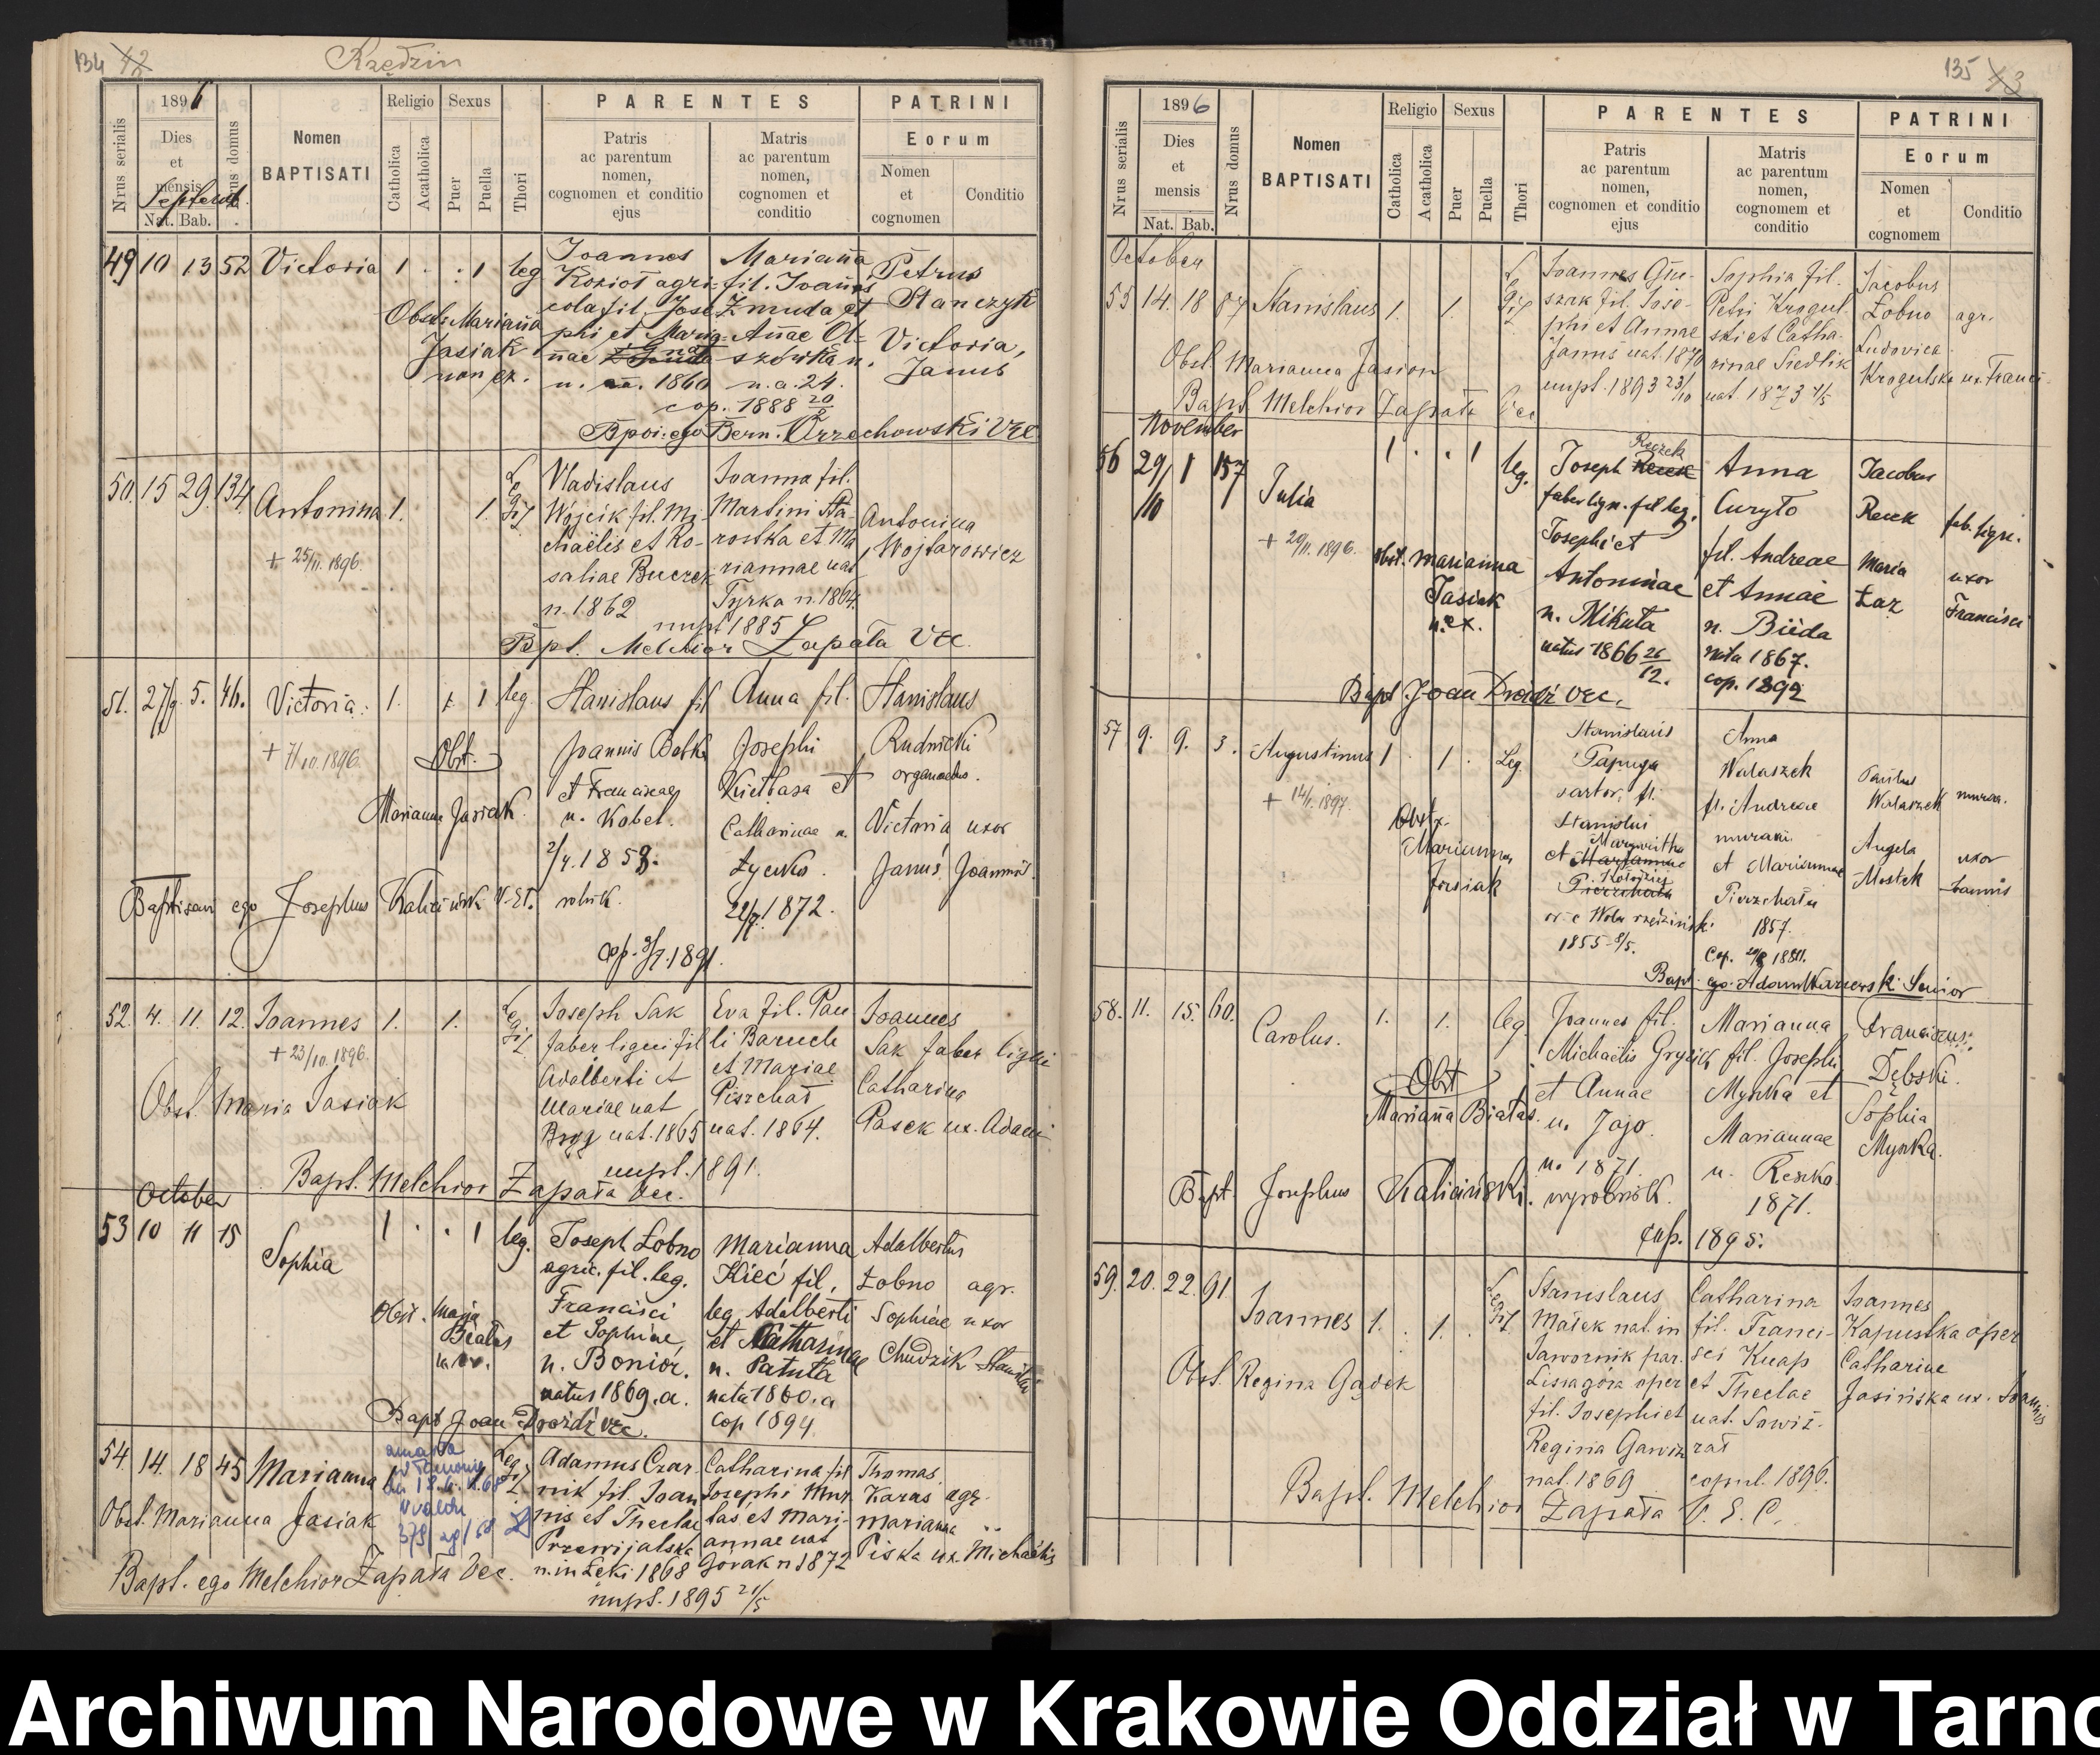 134
Rzędzin
1896
Religio Sexus
PARENTES
PATRINI
Nrus serialis
Dies et mensis
Nrus domus
Nomen BAPTISATI
Catholica
Acatholica
Puer
Puella
Thori
Patris ac parentum nomen, cognomen et conditio ejus
Matris ac parentum nomen, cognomen et conditio
Eorum
Nomen et cognomen
Conditio
Nat. Bab.
49 10 13 52 Victoria 1 . . 1 leg
Joannes
Kozioł agri-
cola fil. Jose
phi et Maria
nae
n. 1860
Marianna
fil. Joannis
Żmuda et
Annae
n.a. 24.
cop. 1888 20
Petrus
Stanczyk
Victoria,
Janus
Obst. Marianna
Jasiak
non ex.
Bern. Orzechowski
50. 15 29. 134. Antonina 1. 1. Legit
+ 25/11. 1896.
Vladislaus
Wójcik fil. Mi-
chaëlis et Ro-
saliae Buczek
n. 1862
Joanna fil.
Martini Sta-
rostka et Ma
riannae nat
Tyrka n. 1864.
nupt 1885
Antonina
Wojtarowicz
Bpt. Melchior Zapała
51. 27/9. 5. 46. Victoria. 1. 1 leg.
+ 7/10. 1896.
Obst.
Marianna Jasiak
Stanislaus fil
Joannis Botko
et Franciscae
n. Kobel.
2/4. 1858.
rolnik.
Anna fil.
Josephi
Kiełbasa et
Catharinae n.
Łycko.
22/7. 1872.
Stanislaus
Rudnicki
organoedus.
Victoria uxor
Janus, Joannis.
Baptisavi ego Josephus Kaliciński
52. 4. 11. 12. Joannes 1. 1. Legit
+ 23/10. 1896.
Obst. Maria Jasiak
Joseph Sak
faber lignei fil
Adalberti et
Mariae nat
nat. 1865
Eva fil. Pau
li Baruch
et Mariae
Pierzchał
nat. 1864.
nupt. 1891.
Joannes
Sak faber ligni
Catharina
Pasek ux. Adami
Bapt. Melchior Zapała
October
53 10 11 15 Sophia 1 . . 1 leg.
Obst. Marja
Białas
Joseph Łobno
agric. fil. leg.
Francisci
et Sophiae
n. Bonior.
natus 1869. a.
Marianna
Kieć fil.
leg. Adalberti
et Catharinae
n. Patuła
nata 1860. a
cop 1894
Adalbertus
Łobno agr.
Sophiae uxor
Chudzik Stanislai
Bapt Joan Drożdż
54. 14. 18 45 Marianna 1 1 Legit
Obst. Marianna Jasiak
Adamus Czar-
nik fil. Joan
nis et Theclae
Przewijalska
n. in Łęki 1868
Catharina fil
Josephi Mus
łas et Mari-
annae nat
Górak n 1872
nupt. 1895 21/5
Thomas
Karas agr.
Marianna
Piska ux. Michaëlis
Bapt. ego Melchior Zapała
135
1896
Religio Sexus
PARENTES
PATRINI
Nrus serialis
Dies et mensis
Nrus domus
Nomen BAPTISATI
Catholica
Acatholica
Puer
Puella
Thori
Patris ac parentum nomen, cognomen et conditio ejus
Matris ac parentum nomen, cognomem et conditio
Eorum
Nomen et cognomem
Conditio
Nat. Bab.
October
55 14. 18 87 Stanislaus 1. 1. Legit
Obst. Marianna Jasion
Joannes Gru-
szak fil. Jose-
phi et Annae
Janus nat. 1870
nupt. 1893 23/10
Sophia fil.
Petri Krogul-
ski et Catha-
rinae Siedlik
nat. 1873 4/5
Jacobus
Łobno agr.
Ludovica
Krogulska ux. Franci
Bapt Melchior Zapała
November
56 29/10 1 157 Julia 1 . . 1 leg.
+ 29/11. 1896.
Obst. Marianna
Jasiak
n. ex.
Joseph
faber lign. fil leg.
Josephi et
Antoninae
n. Mikuta
natus 1866 26/12.
Anna
Curyło
fil. Andreae
et Annae
n. Bieda
nata 1867.
cop. 1892
Jacobus
fab. ligni.
Maria uxor
Łaz Francisci
Bapt. Joan Drożdż
57 9. 9. 3. Augustinus 1 1 Leg.
+ 14/1. 1897.
Obst.
Marianna
Jasiak
Stanislaus
Papuga
sartor, fil.
Stanislai
et Margaritha
Kołodziej
Pierzchała
1855 8/5.
Anna
Walaszek
fil. Andreae
murarii
et Mariannae
Pierzchała
1857.
Paulus
Walaszek murar.
Angela uxor
Mostek Joannis
Bapt. ego Adam
58. 11. 15. 60. Carolus. 1. 1. leg
Obst
Marianna Białas.
Joannes fil.
Michaëlis Gryzik
et Annae
n. Jajo.
n. 1871.
wyrobnik.
Marianna
fil. Josephi
Myszka et
Mariannae
n. Reszka
1871.
cop. 1895.
Franciscus
Dębski.
Sophia
Myszka.
Bapt. Josephus Kaliciński.
59. 20. 22. 91 Joannes 1. 1. Legit
Obst. Regina Gądek
Stanislaus
Małek nat. in
Jawornik par.
Lissagóra oper
fil. Josephi et
Regina Gawiz
nat. 1869
Catharina
fil. Franci-
sci Knap
et Theclae
nat. Sowiz-
rał
copul. 1896.
Joannes
Kapustka oper
Catharine
Jasińska ux. Joannis
Bapt. Melchior Zapała V. E. C.
Archiwum Narodowe w Krakowie Oddział w Tarno